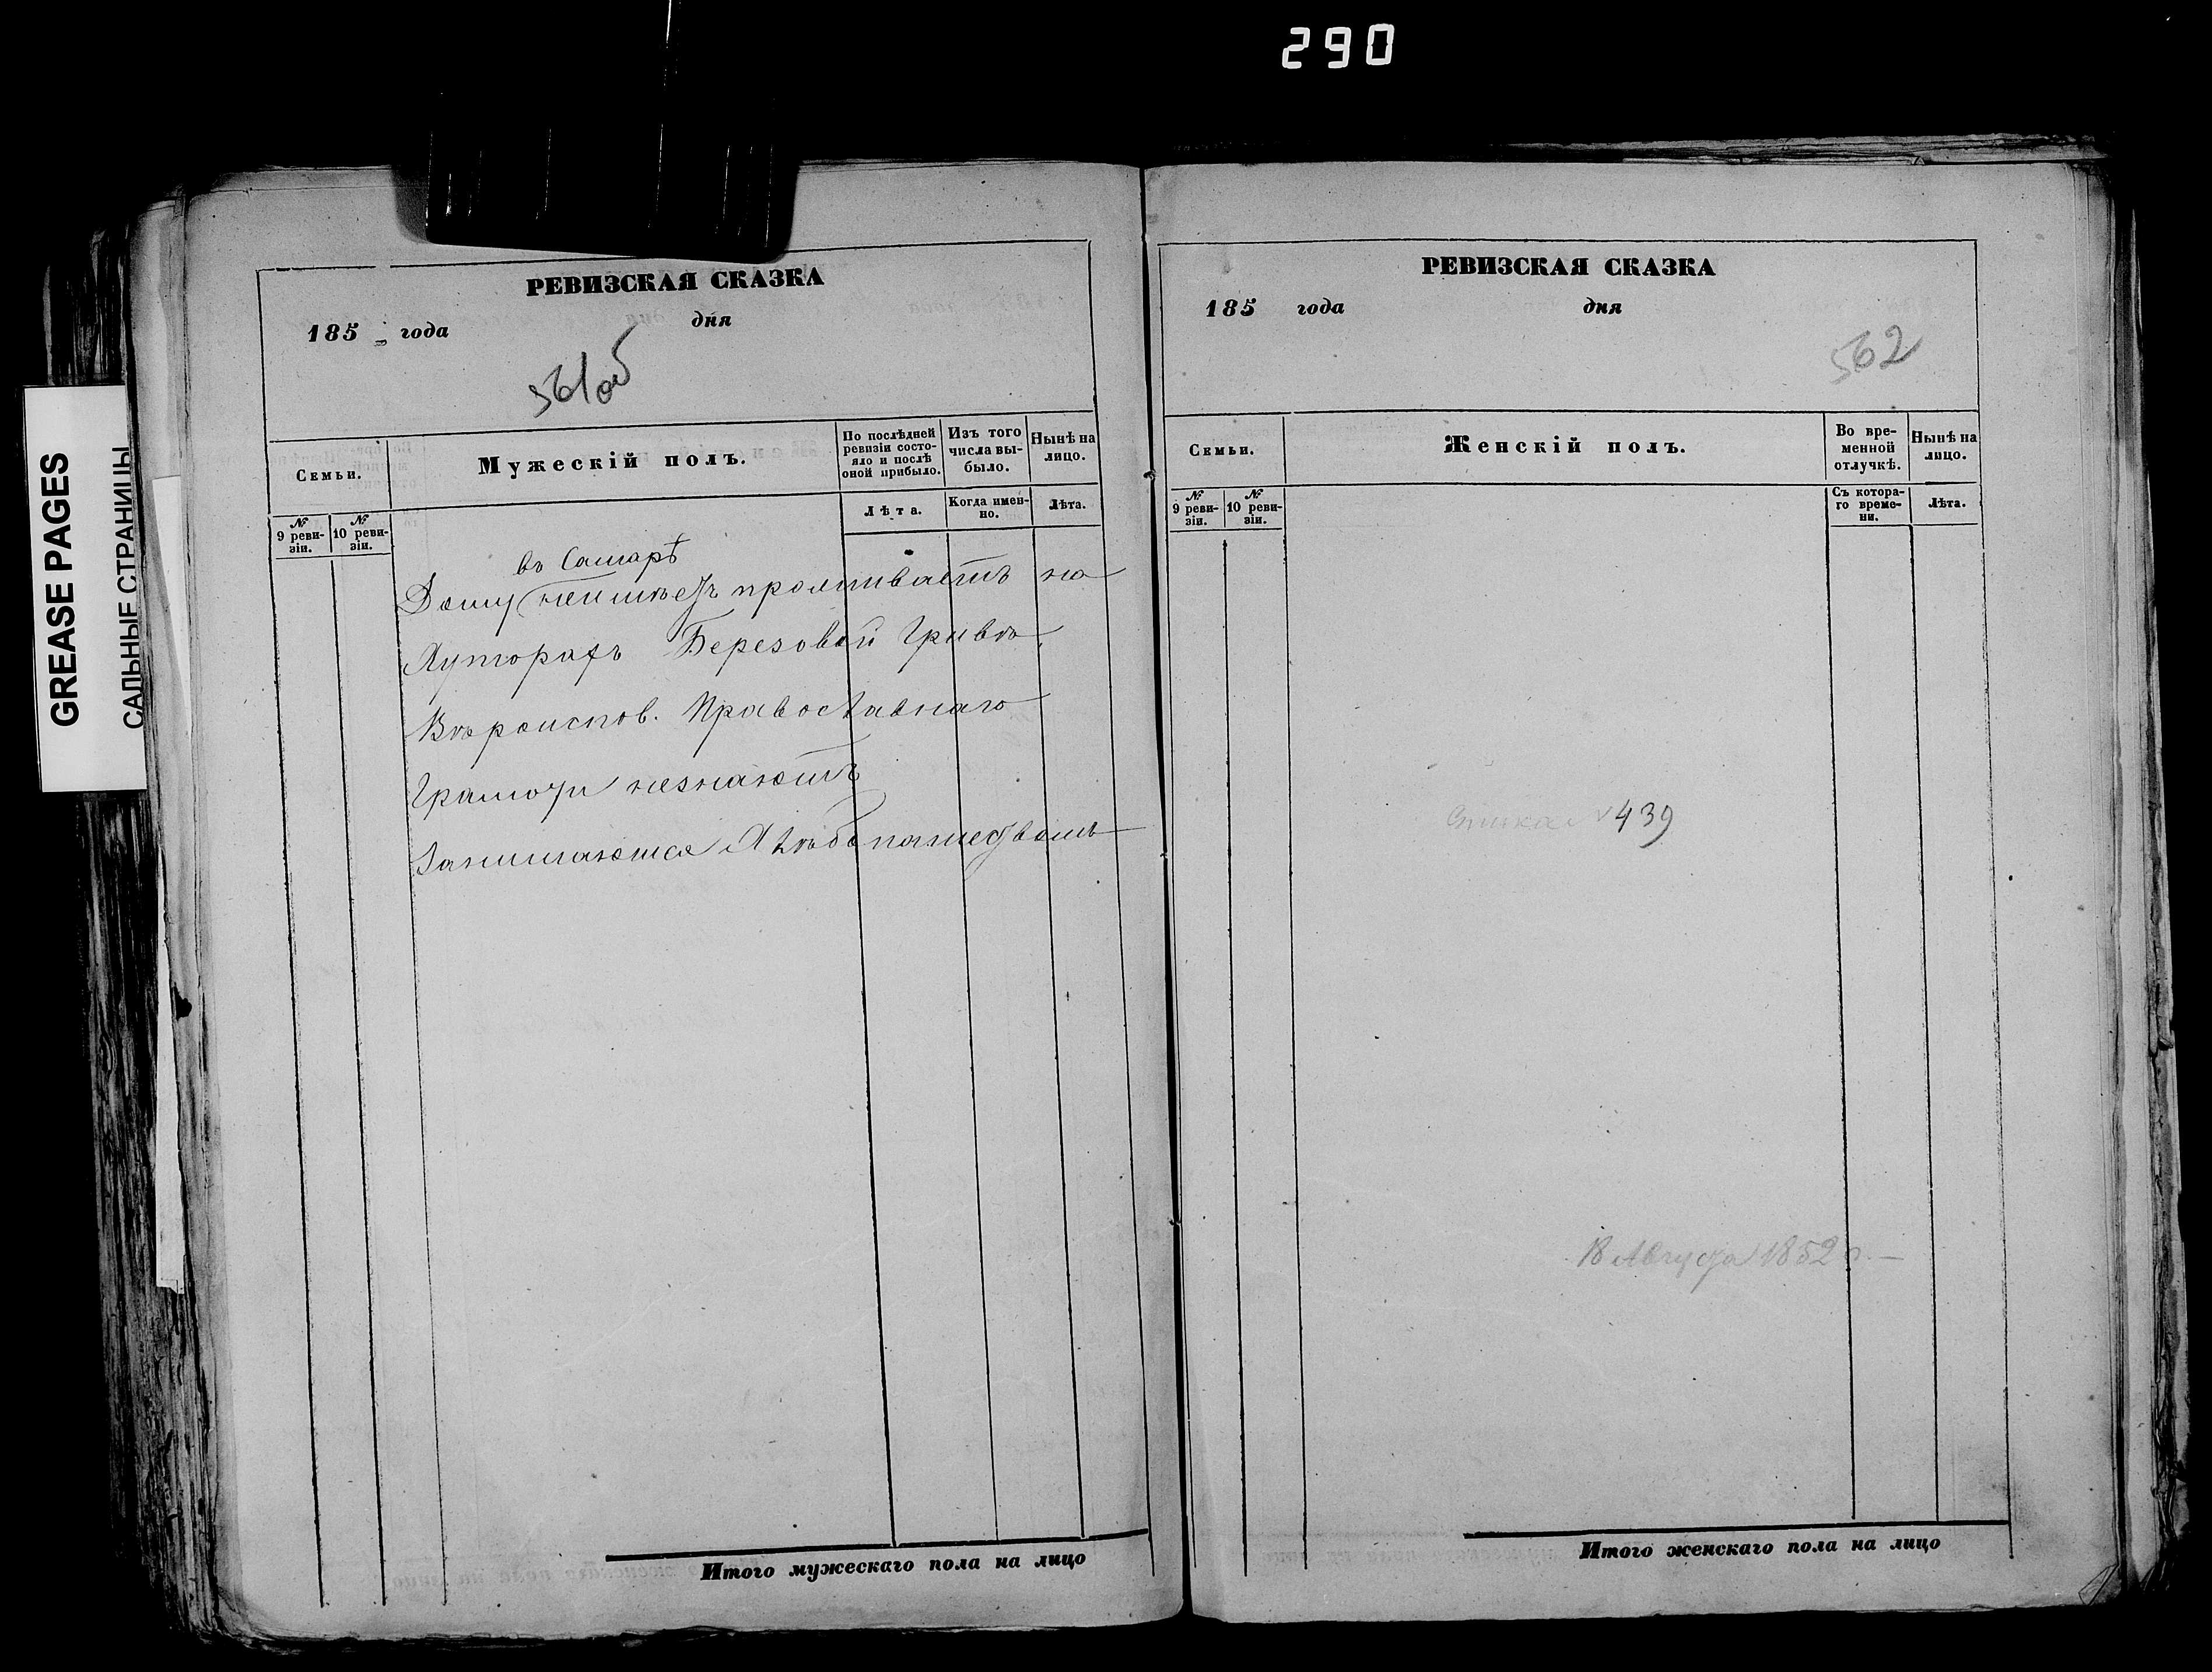 290
GREASE PAGES
САЛЬНЫЕ СТРАНИЦЫ
РЕВИЗСКАЯ СКАЗКА
185 года дня
561об
Семьи.
Мужескій полъ.
По послѣдней ревизіи состо-
яло и послѣ оной прибыло.
Изъ того числа вы-
было.
Нынѣ на лицо.
№ 9 реви-
зіи.
№ 10 реви-
зіи.
Лѣта.
Когда имен-
но.
Лѣта.
въ Самарѣ
Дому неимѣетъ проживаетъ на
Хуторахъ Березовой Гривѣ
Вѣроиспов. Православнаго
Грамоти незнаютъ
Занимаются Хлѣбопашеством
Итого мужескаго пола на лицо
РЕВИЗСКАЯ СКАЗКА
185 года дня
562
Семьи.
Женскій полъ.
Во вре-
менной
отлучкѣ.
Нынѣ на
лицо.
№ 9 реви-
зіи.
№ 10 реви-
зіи.
Съ котора-
го време-
ни.
Лѣта.
439
18 Августа 1852 г.
Итого женскаго пола на лицо